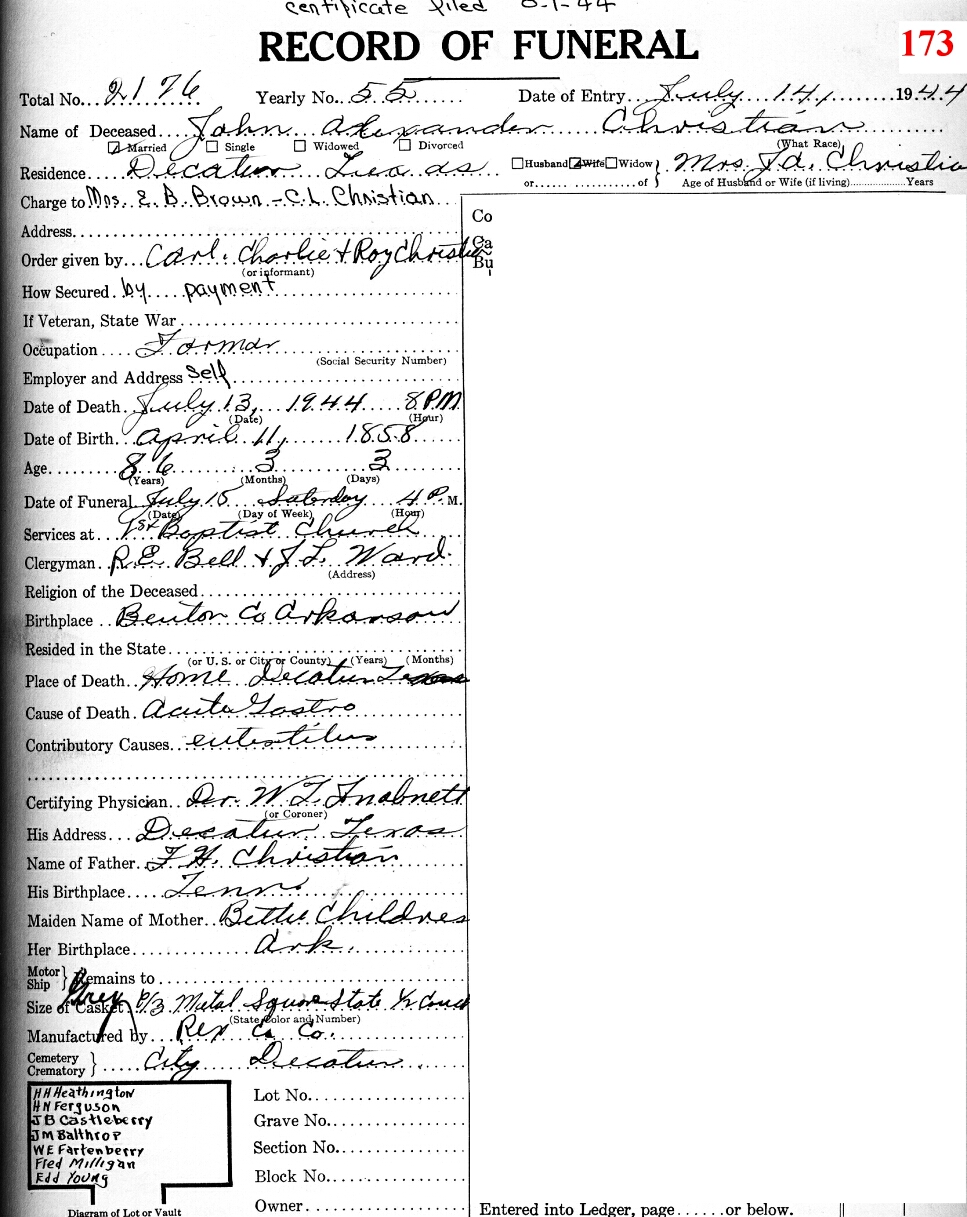 certificate filed 8-1-44
RECORD OF FUNERAL
173
Total No. 2176 Yearly No. 55 Date of Entry July 14, 1944
Name of Deceased John Alexander Christian
Married Single Widowed Divorced (What Race)
Residence Decatur Texas Husband Wife Widow or of Mrs. J.A. Christia
Age of Husband or Wife (if living) Years
Charge to Mrs. E. B. Brown - C.L. Christian
Co
Address
Ca
Order given by Carl, Charlie & Roy Christi
(or informant)
Bu
How Secured by payment
If Veteran, State War
Occupation Farmar
(Social Security Number)
Employer and Address Self
Date of Death July 13, 1944 8 P.M
(Date) (Hour)
Date of Birth April 11, 1858
Age 86 3 3
(Years) (Months) (Days)
Date of Funeral July 15 Saturday 4 P. M.
(Date) (Day of Week) (Hour)
Services at 1st Baptist Church
Clergyman R.E. Bell & J.L. Ward
(Address)
Religion of the Deceased
Birthplace Benton Co Arkansas
Resided in the State
(or U. S. or City or County) (Years) (Months)
Place of Death Home Decatur Texas
Cause of Death Acute Gastro
Contributory Causes
Certifying Physician Dr. W.T. Inabnett
(or Coroner)
His Address Decatur Texas
Name of Father F.H. Christian
His Birthplace Tenn.
Maiden Name of Mother Bettie Childres
Her Birthplace Ark.
Motor Ship Remains to
Size of Casket Grey 6/3 Metal Square State 1/2 Couch
(State Color and Number)
Manufactured by Rex C. Co.
Cemetery Crematory City Decatur
HH Heathington
HN Ferguson
JB Castleberry
JM Balthrop
WE Fartenberry
Fred Milligan
Edd Young
Diagram of Lot or Vault
Lot No.
Grave No.
Section No.
Block No.
Owner
Entered into Ledger, page or below.